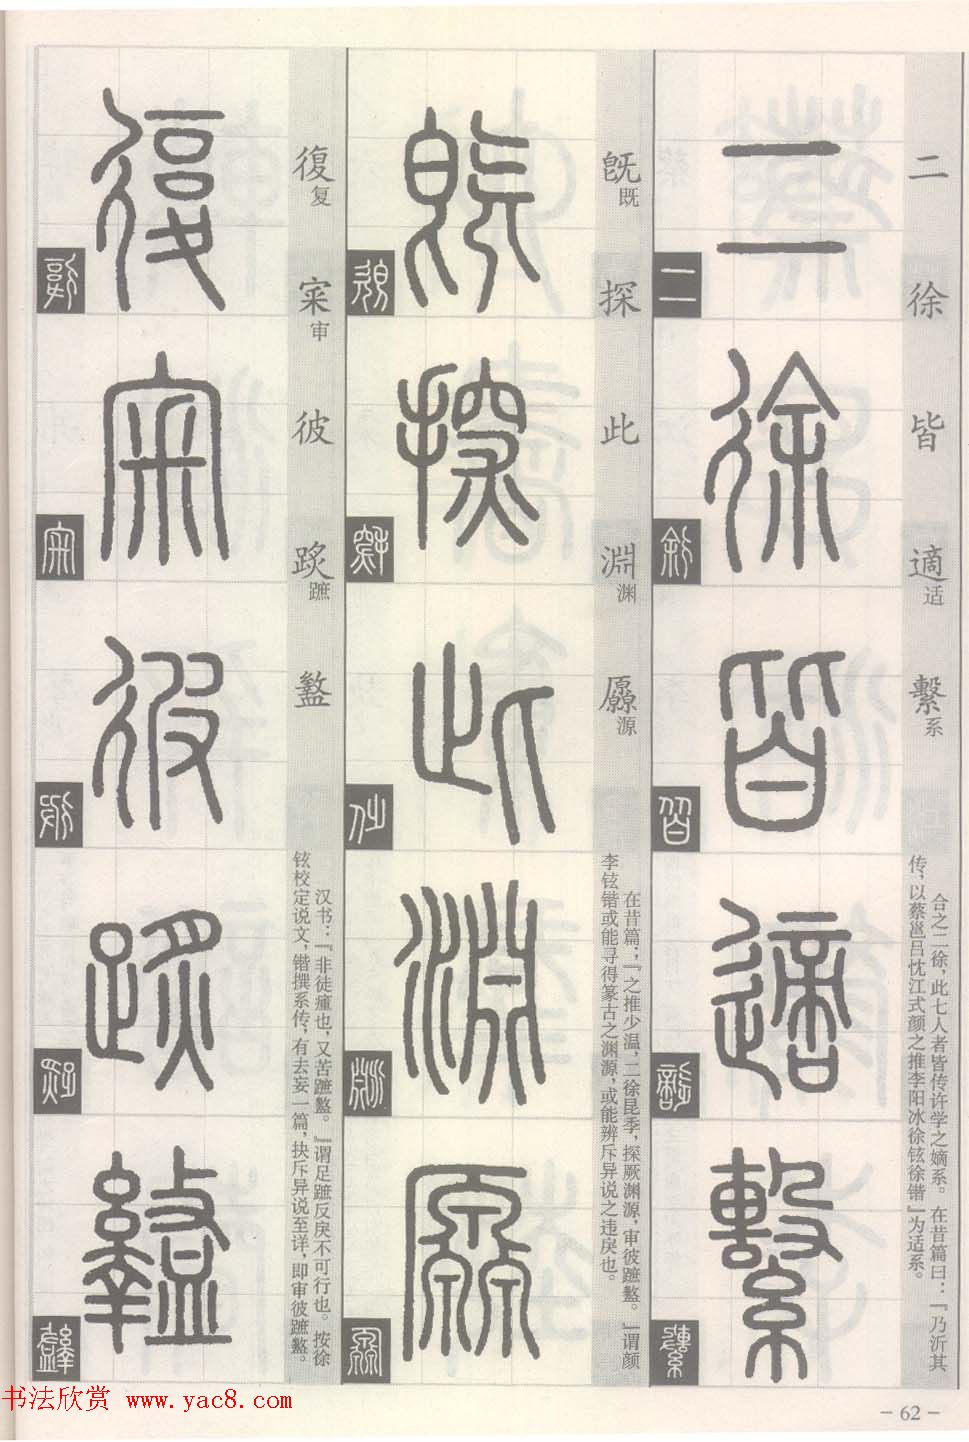 二徐皆適适繫系
合之二徐，此七人者皆传许学之嫡系。在昔篇曰：『乃沂其
传，以蔡邕吕忱江式颜之推李阳冰徐铉徐锴』为适系。
旣既探此淵渊厵源
在昔篇；『之推少温，二徐昆季，探厥渊源，审彼蹠盭。』谓颜
李铉锴或能寻得篆古之渊源，或能辨斥异说之违戾也。
復复寀审彼蹠盭
汉书：『非徒瘇也，又苦蹠盭。』谓足蹠反戾不可行也。按徐
铉校定说文，锴撰系传，有去妄一篇，抉斥异说至详，即审彼蹠盭。
书法欣赏 www.yac8.com
- 62 -